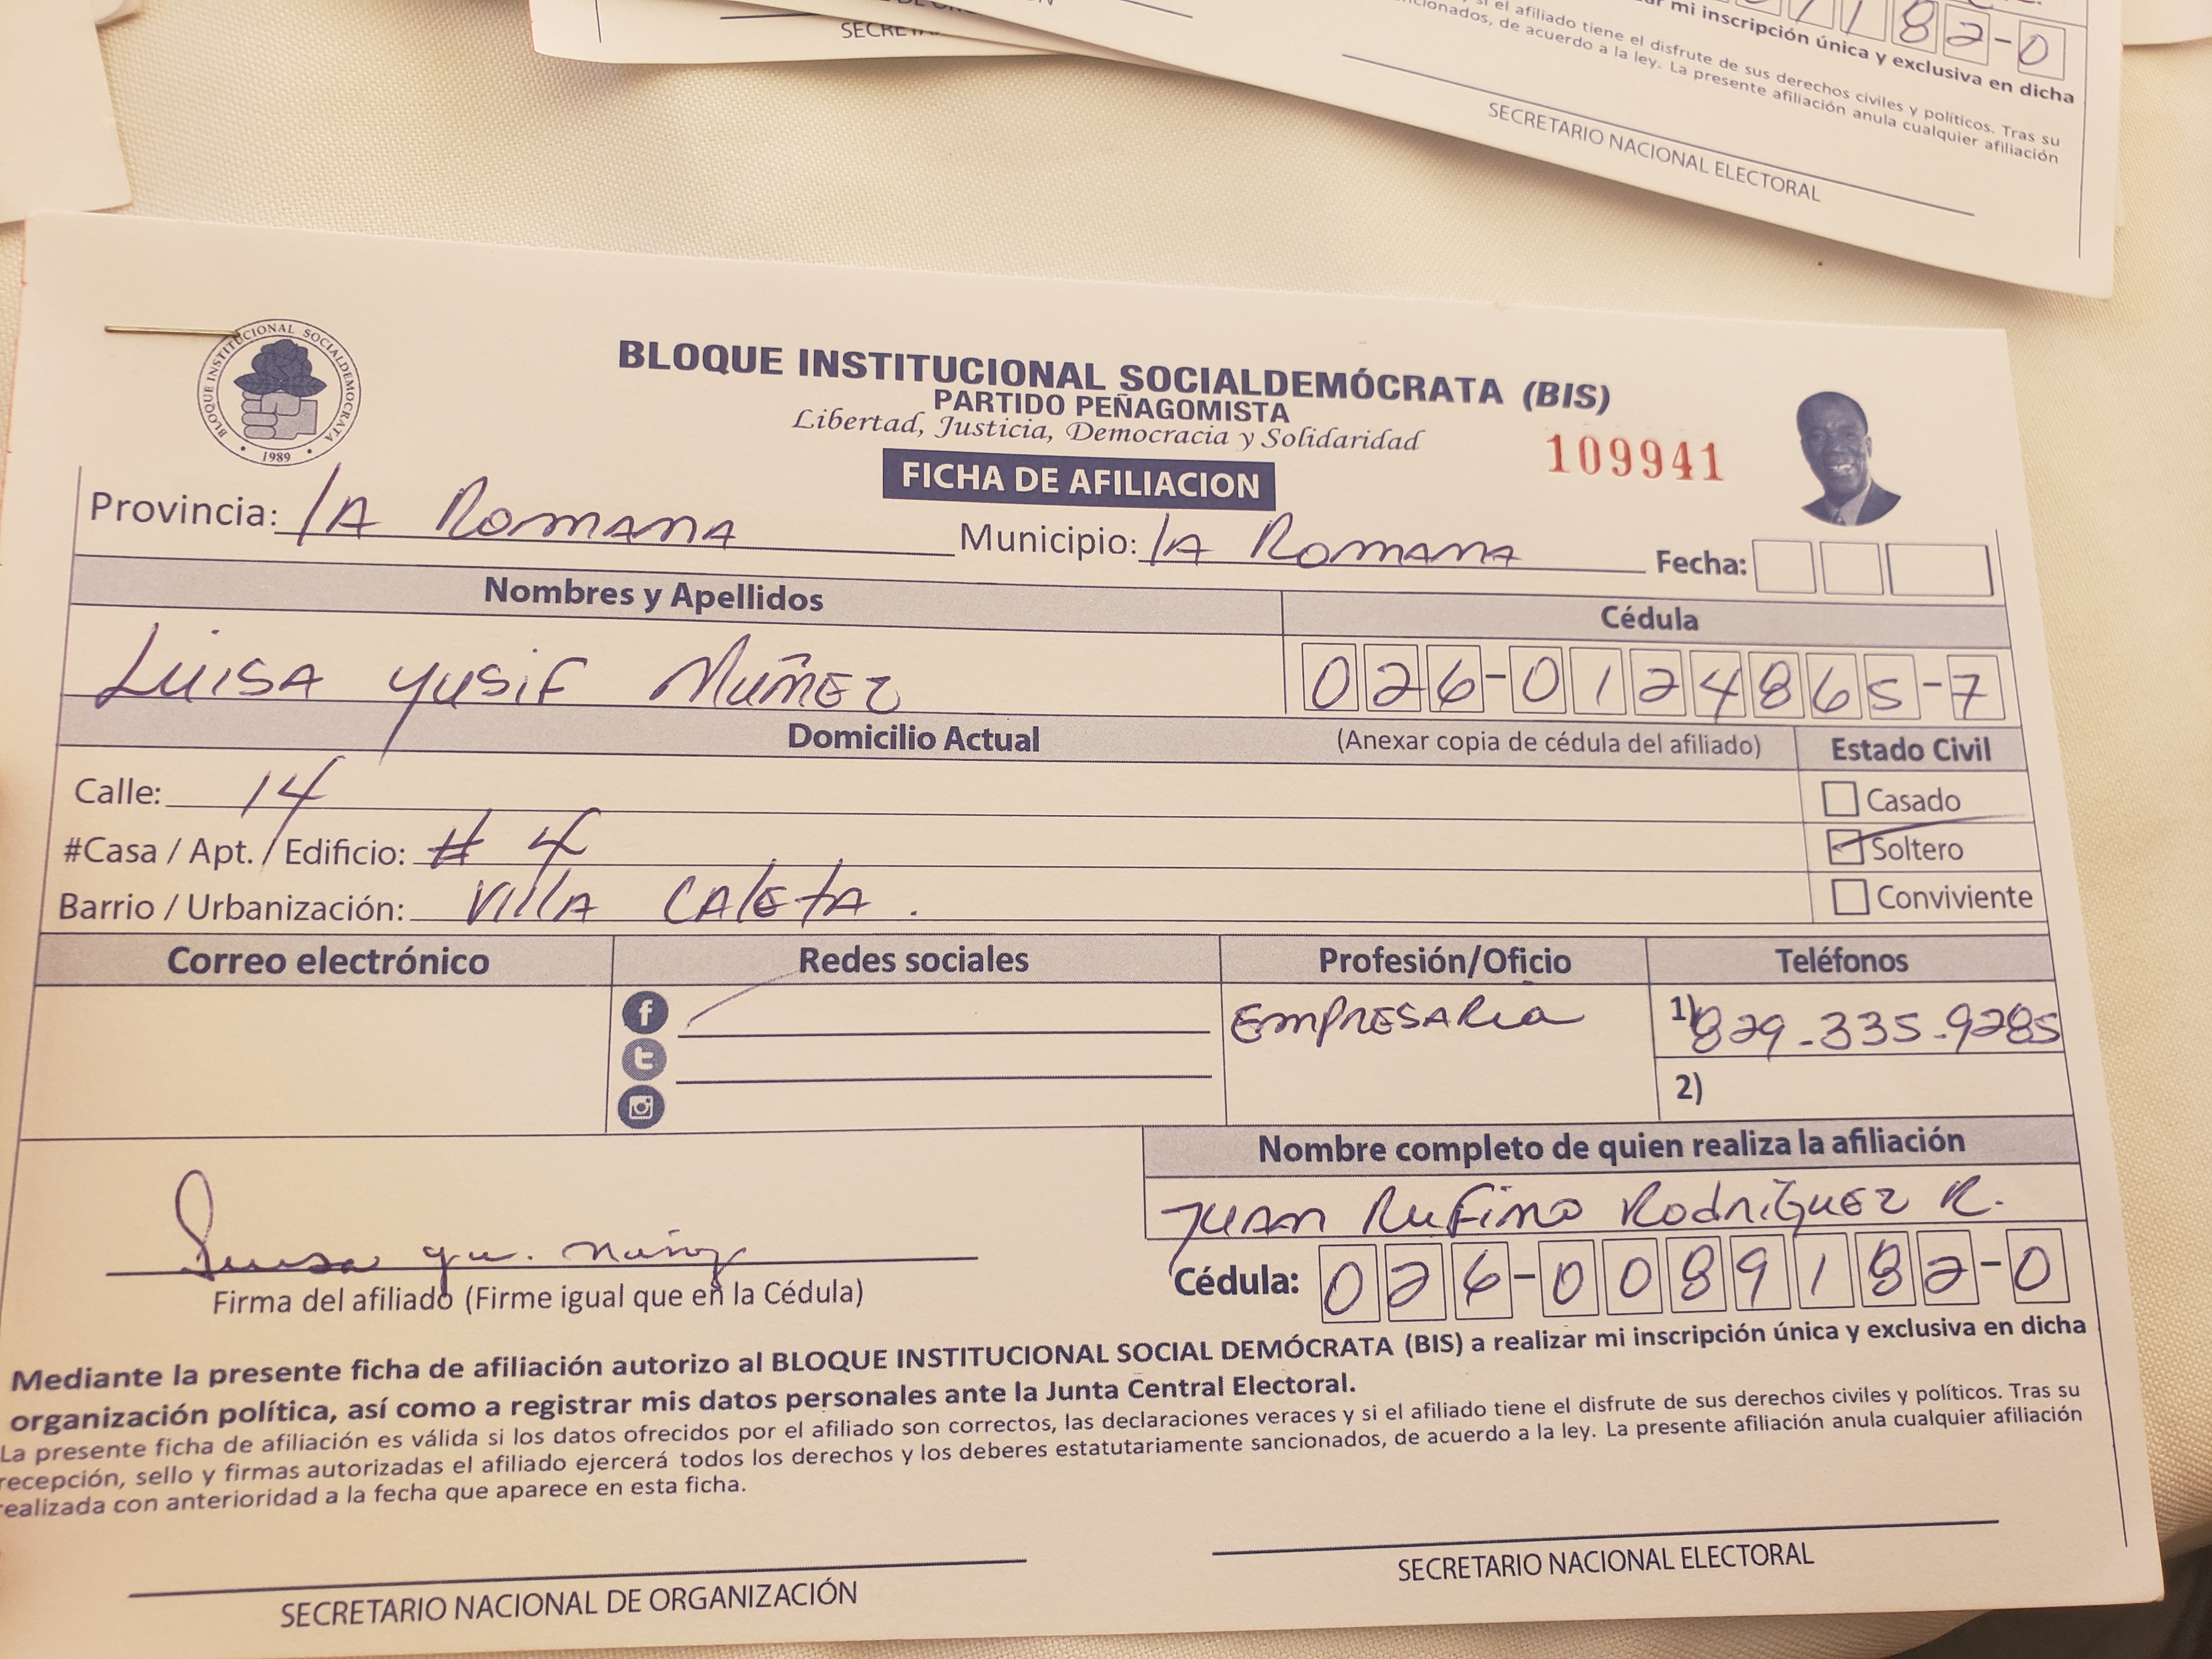 SECRETA
mi inscripción única y exclusiva en dicha
182-0
si el afiliado tiene el disfrute de sus derechos civiles y políticos. Tras su
cionados, de acuerdo a la ley. La presente afiliación anula cualquier afiliación
SECRETARIO NACIONAL ELECTORAL
BLOQUE INSTITUCIONAL SOCIALDEMOCRATA
• 1989 •
BLOQUE INSTITUCIONAL SOCIALDEMÓCRATA (BIS)
PARTIDO PEÑAGOMISTA
Libertad, Justicia, Democracia y Solidaridad
109941
FICHA DE AFILIACION
Provincia: lA RomANA Municipio: lA RomANA Fecha:
Nombres y Apellidos Cédula
LuiSA yusiF MuñEz 026-0124865-7
Domicilio Actual (Anexar copia de cédula del afiliado) Estado Civil
Calle: 14 Casado
#Casa / Apt. / Edificio: # 4 Soltero
Barrio / Urbanización: VillA CAlEtA. Conviviente
Correo electrónico Redes sociales Profesión/Oficio Teléfonos
f EmpRESARia 1) 829-335-9285
t
2)
Nombre completo de quien realiza la afiliación
JuAn RuFino RodRíguEz R.
Luisa yu. nuñez
Firma del afiliado (Firme igual que en la Cédula) Cédula: 026-0089182-0
Mediante la presente ficha de afiliación autorizo al BLOQUE INSTITUCIONAL SOCIAL DEMÓCRATA (BIS) a realizar mi inscripción única y exclusiva en dicha
organización política, así como a registrar mis datos personales ante la Junta Central Electoral.
La presente ficha de afiliación es válida si los datos ofrecidos por el afiliado son correctos, las declaraciones veraces y si el afiliado tiene el disfrute de sus derechos civiles y políticos. Tras su
recepción, sello y firmas autorizadas el afiliado ejercerá todos los derechos y los deberes estatutariamente sancionados, de acuerdo a la ley. La presente afiliación anula cualquier afiliación
realizada con anterioridad a la fecha que aparece en esta ficha.
SECRETARIO NACIONAL DE ORGANIZACIÓN SECRETARIO NACIONAL ELECTORAL